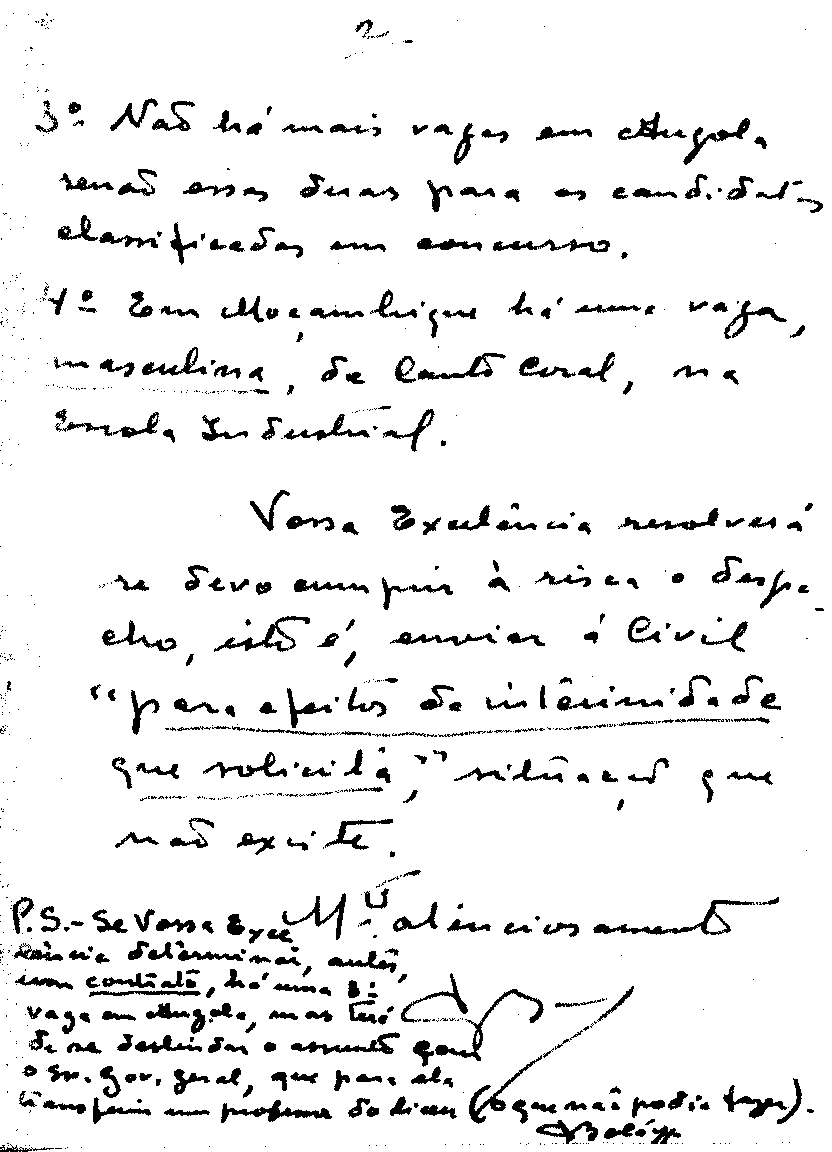 2-
3º Não há mais vagas em Angola
senão essas duas para os candidatos
classificados em concurso.
4º Em Moçambique há uma vaga,
masculina, de Canto Coral, na
Escola Industrial.
Vossa Excelência resolverá
se devo cumprir à risca o despa-
cho, isto é, enviar á Civil
"para efeitos de interinidade
que solicita," situação que
não existe.
Mº atenciosamente
P.S.- Se Vossa Exce
lência determinar, antes,
um contrato, há uma 3ª
vaga em Angola, mas terá
de se deslindar o assunto com
o Sr. Gov. geral, que para ela
transferiu um professor do liceu (o que não podia fazer).